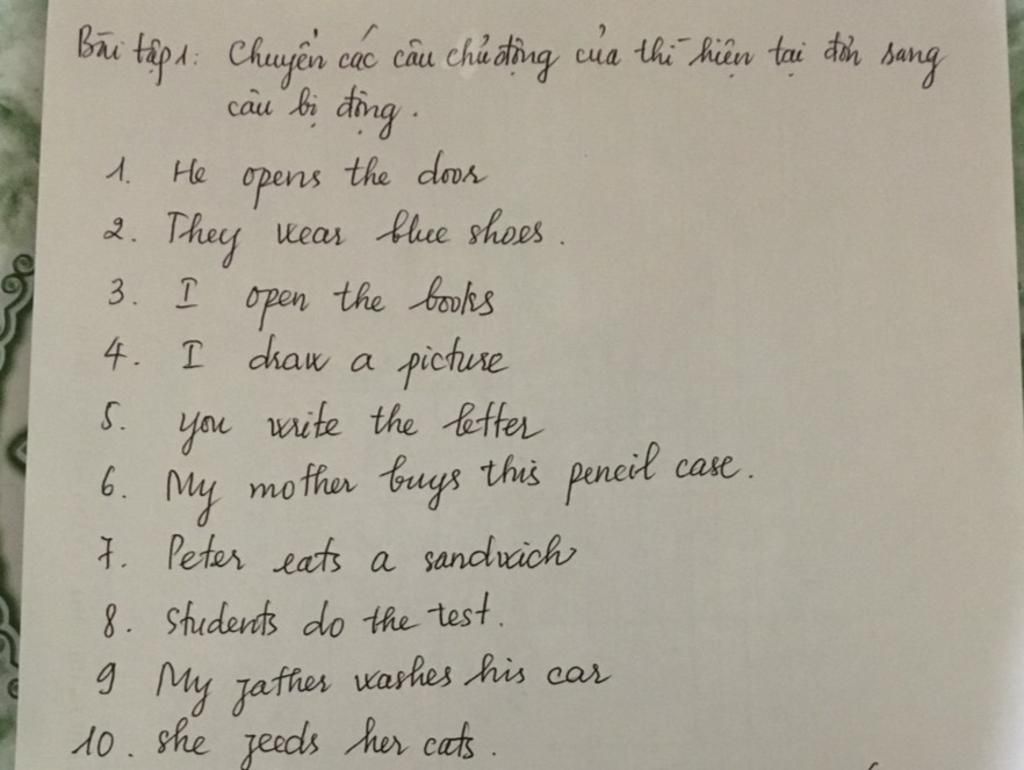 Bài tập 1: Chuyển các câu chủ động của thì hiện tại đơn sang
câu bị động.
1. He opens the door
2. They wear blue shoes.
3. I open the books
4. I draw a picture
5. you write the letter
6. My mother buys this pencil case.
7. Peter eats a sandwich
8. Students do the test.
9 My father washes his car
10. she feeds her cats.